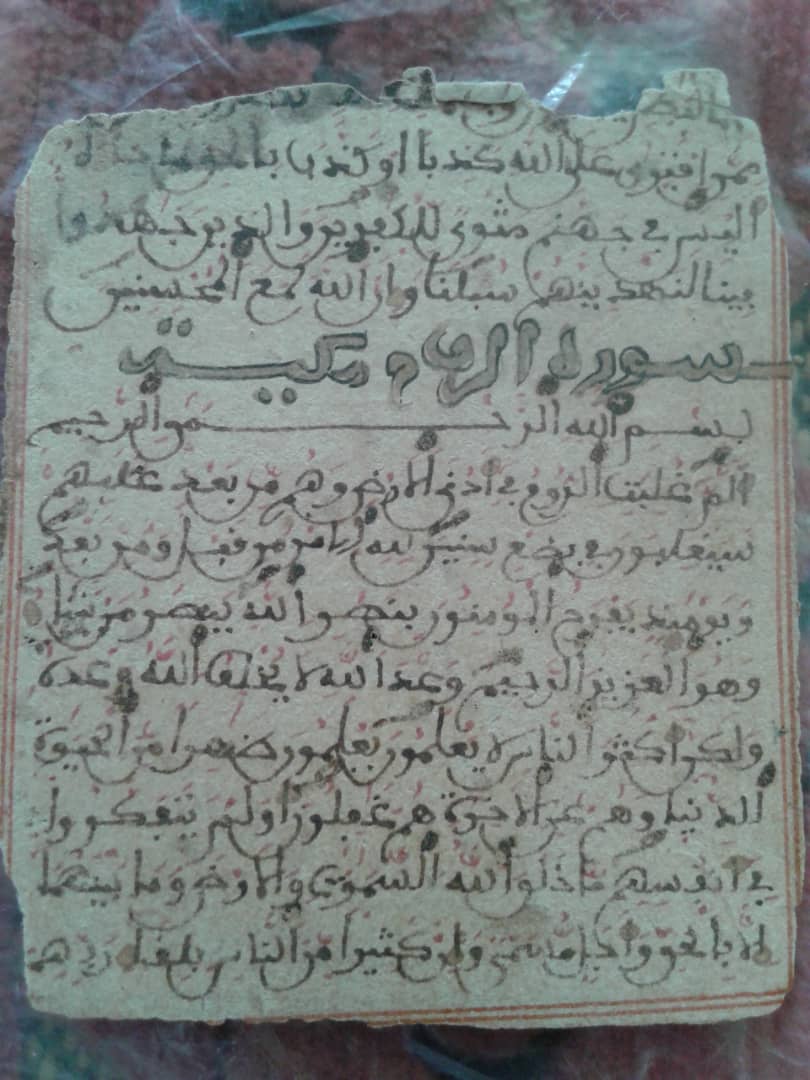 ممن افترى على الله كذبا او كذب بالحق لما جاءه
اليس في جهنم مثوى للكفرين والذين جهدوا
فينا لنهدينهم سبلنا وان الله لمع المحسنين
سورة الروم مكية
بسم الله الرحمن الرحيم
الم غلبت الروم في ادنى الارض وهم من بعد غلبهم
سيغلبون في بضع سنين لله الامر من قبل ومن بعد
ويومئذ يفرح المومنون بنصر الله ينصر من يشاء
وهو العزيز الرحيم وعد الله لا يخلف الله وعده
ولكن اكثر الناس لا يعلمون يعلمون ظهرا من الحيوة
الدنيا وهم عن الاخرة هم غفلون اولم يتفكروا
في انفسهم ما خلق الله السموت والارض وما بينهما
الا بالحق واجل مسمى وان كثيرا من الناس بلقاء ربهم